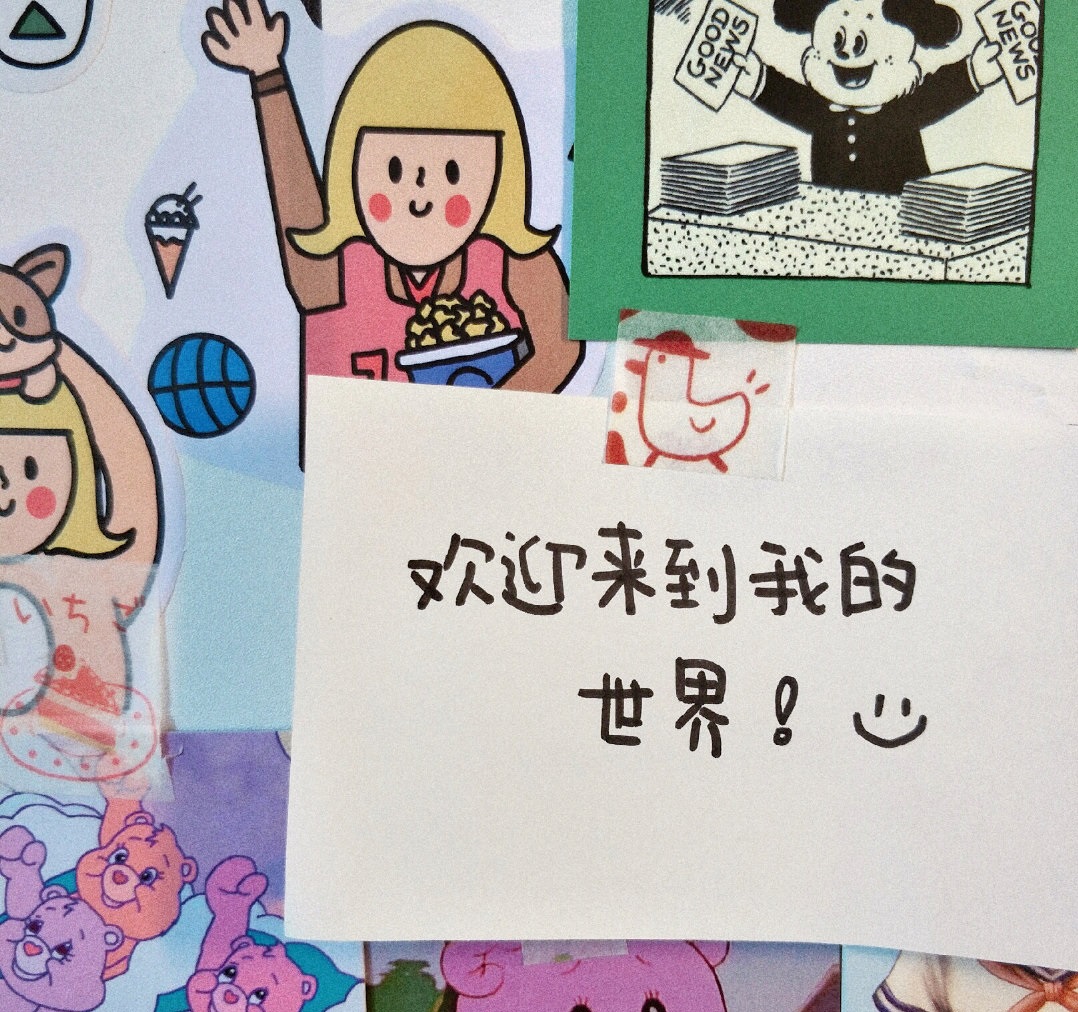 GOOD NEWS
GOOD NEWS
欢迎来到我的
世界！
いちご